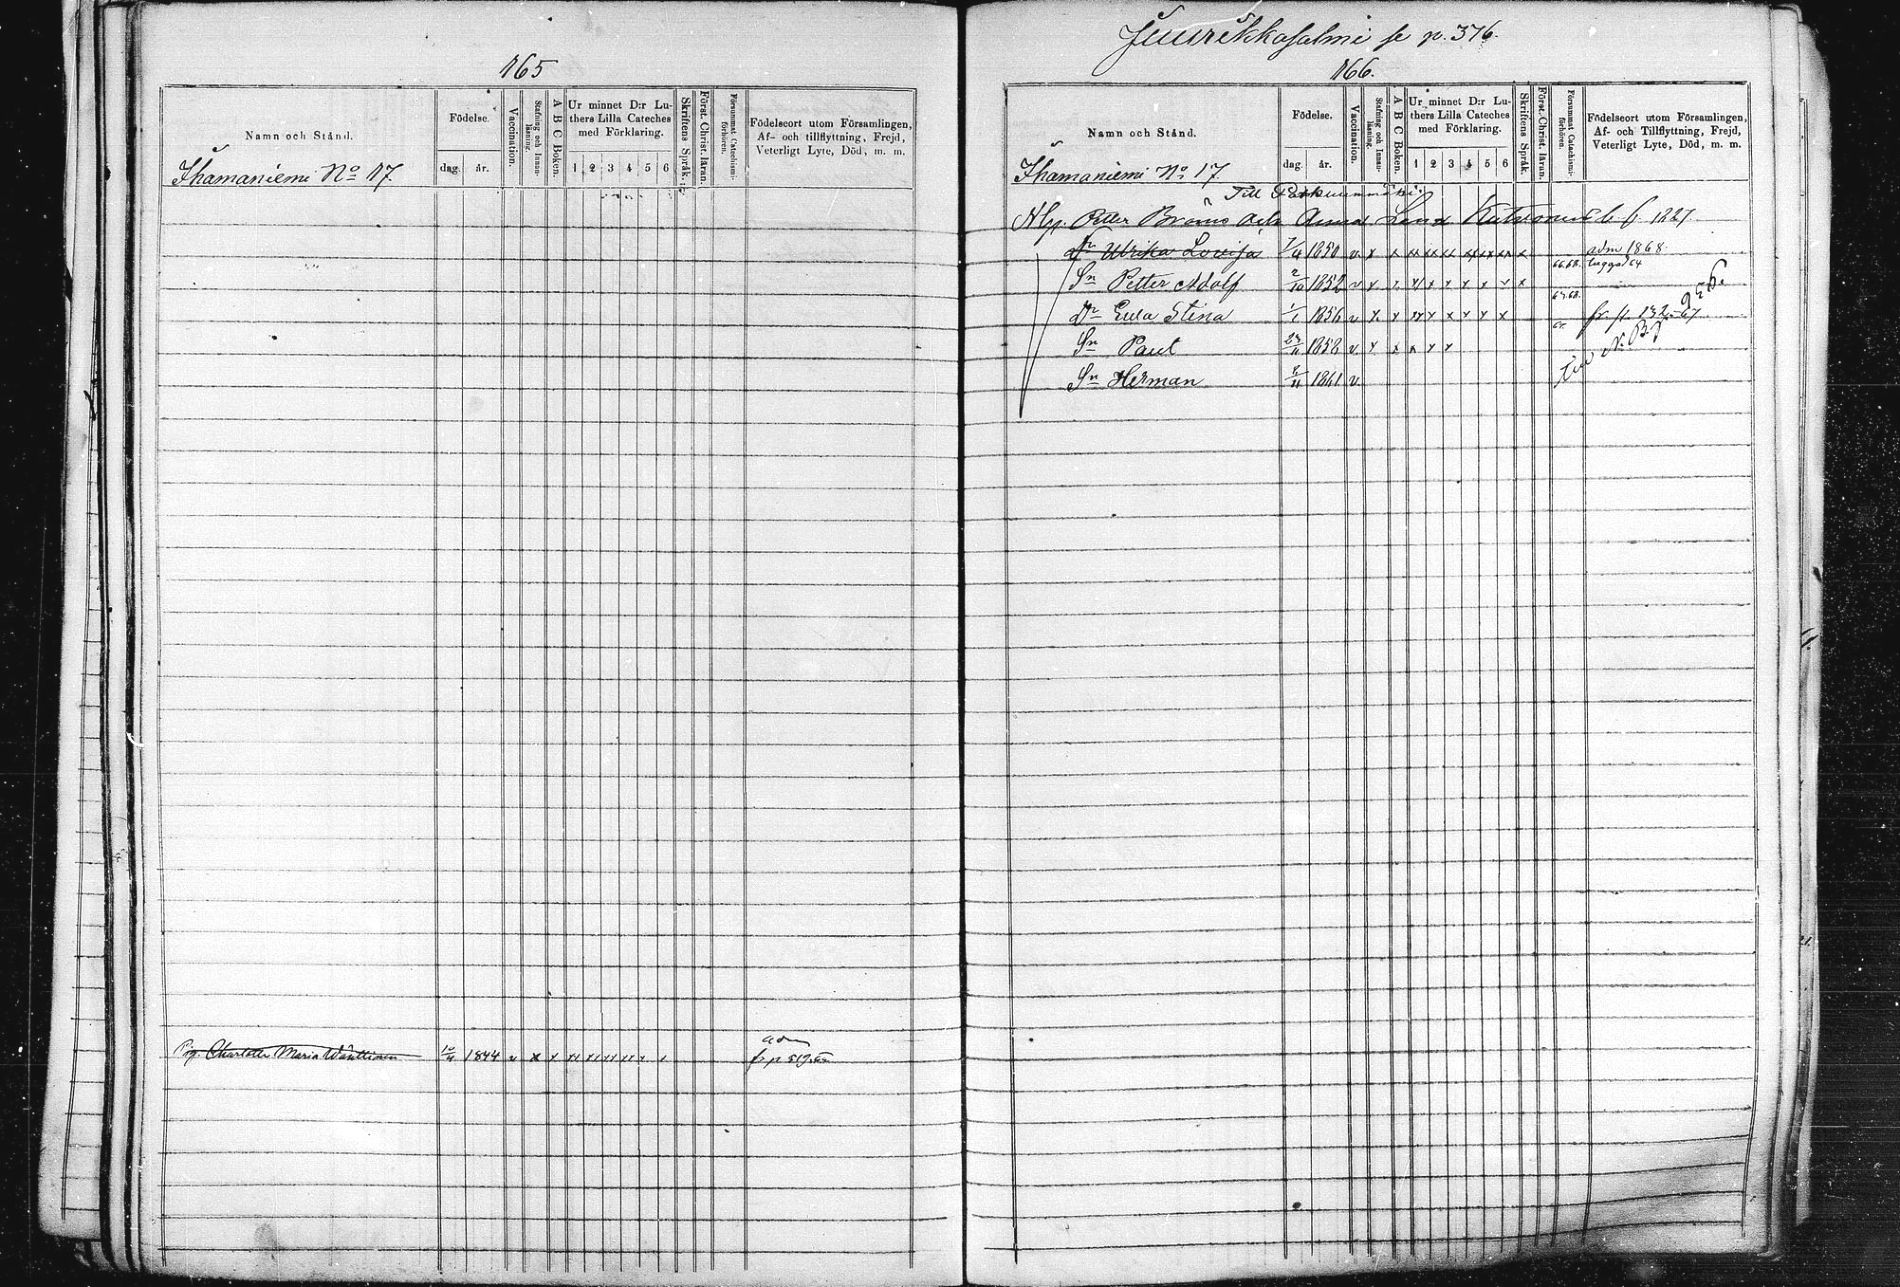 165
Namn och Stånd.
Födelse.
dag.
år.
Vaccination.
Stafning och Innan-
läsning.
A B C Boken.
Ur minnet D:r Lu-
thers Lilla Cateches
med Förklaring.
1 2 3 4 5 6
Skriftens Språk.
Först. Christ. läran.
Försummat Catechismi-
förhören.
Födelseort utom Församlingen,
Af- och tillflyttning, Frejd,
Veterligt Lyte, Död, m. m.
Ihamaniemi No 17.
Pig. Charlotta Maria Wänttinen 10/4 1844 v x x
adm
fr p 519
Juurikkasalmi se p. 376.
166.
Namn och Stånd.
Födelse.
dag.
år.
Vaccination.
Stafning och Innan-
läsning.
A B C Boken.
Ur minnet D:r Lu-
thers Lilla Cateches
med Förklaring.
1 2 3 4 5 6
Skriftens Språk.
Först. Christ. läran.
Försummat Catechismi-
förhören.
Födelseort utom Församlingen,
Af- och Tillflyttning, Frejd,
Veterligt Lyte, Död, m. m.
Ihamaniemi No 17.
Till
Petter och Anna Lena f. 1827
Dr Ulrika Lovisa 7/4 1850 v x x adm 1868.
Sn Petter Adolf 2/10 1852 v x x x x x x x 66.68.
Dr Eva Stina 1/1 1856 v x x x x x x x 67.68. fr p. 132 67
Sn Paul 23/11 1858 v x x x x x
Sn Herman 2/11 1861 v